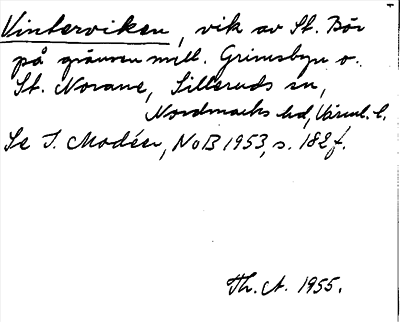 Vinterviken, vik av St. Bör
på gränsen mell. Grimsbyn o.
St. Norane, Silleruds sn,
Nordmarks hd, Värml. l.
Se I. Modéer, NoB 1953, s. 182 f.
Th. A. 1955.